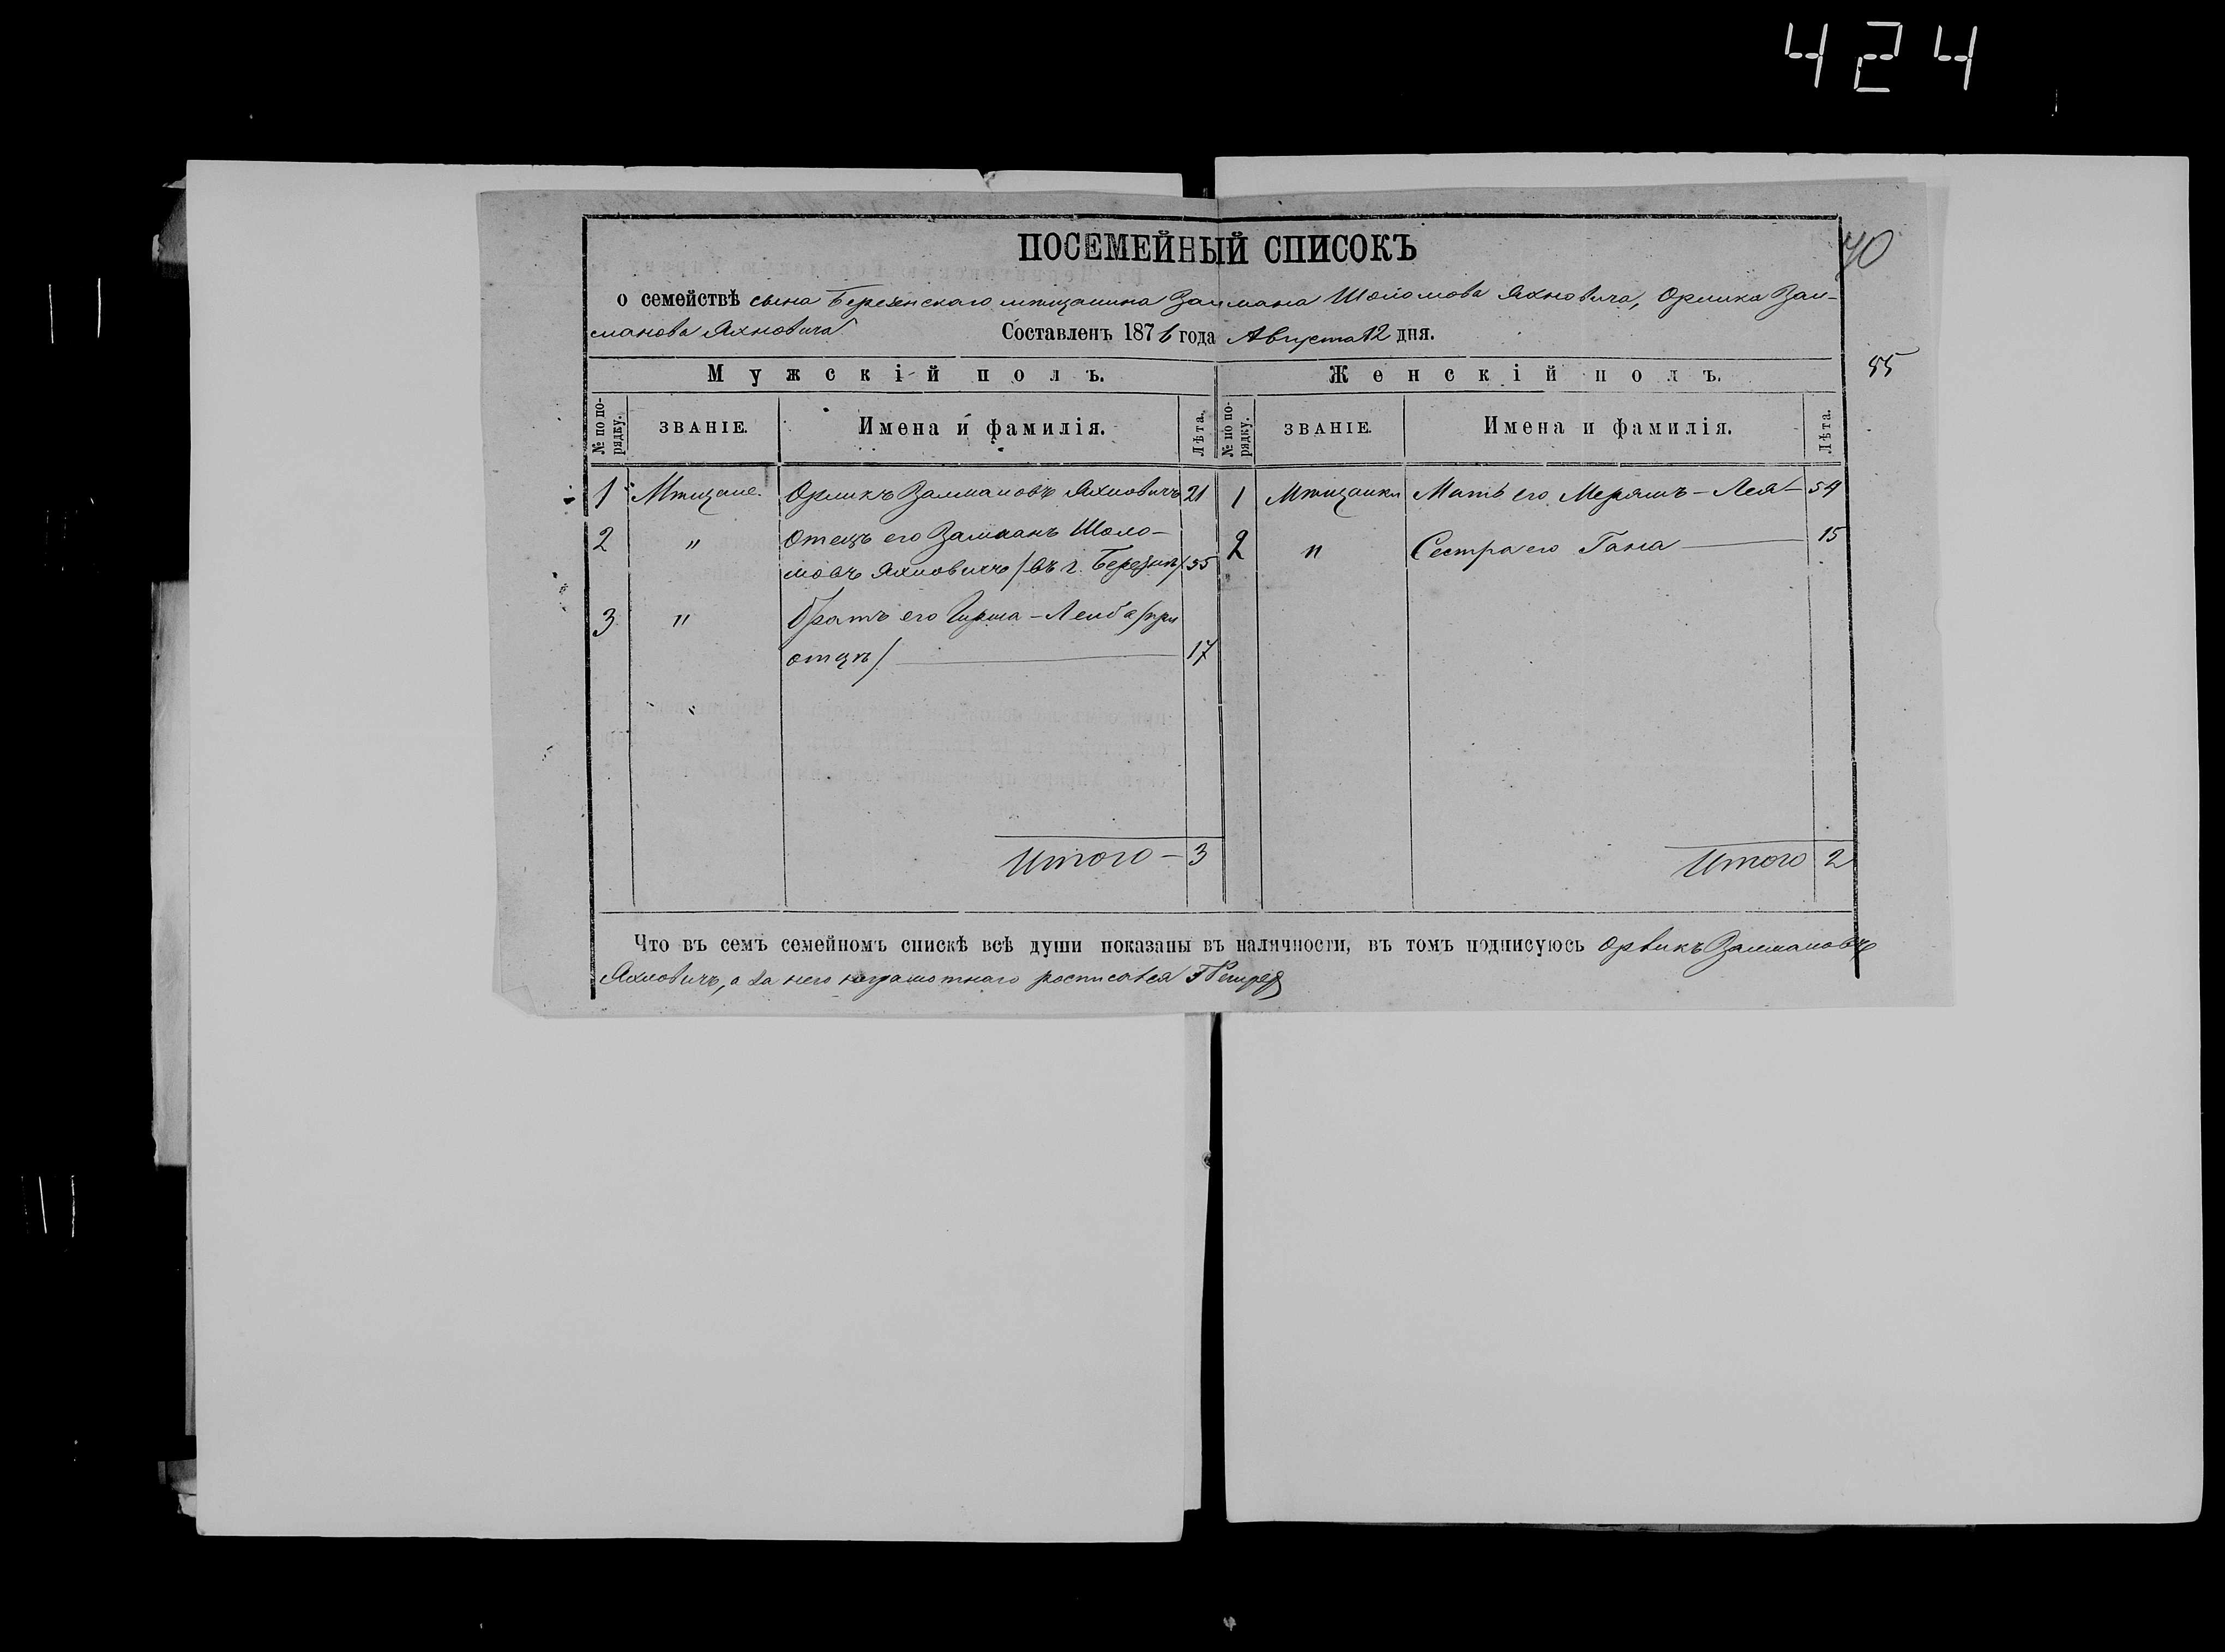 424
ПОСЕМЕЙНЫЙ СПИСОКЪ
40
о семействѣ сына Березенскаго мѣщанина Залмана Шоломова Яхновича, Орлика Зал-
манова Яхновича Составленъ 1876 года Августа 12 дня.
55
Мужскій полъ. Женскій полъ.
№ по порядку. ЗВАНІЕ. Имена и фамилія. Лѣта. № по порядку. ЗВАНІЕ. Имена и фамилія. Лѣта.
1 Мѣщане. Орликъ Залмановъ Яхновичъ 21 1 Мѣщанки Мать его Меряшъ-Лея- 54
2 " Отецъ его Залманъ Шоло-
мовъ Яхновичъ /въ г. Березинѣ/ 55 2 " Сестра его Гана — 15
3 " Братъ его Гирша-Лейба /при
отцѣ/ — 17
Итого - 3 Итого 2
Что въ семъ семейномъ спискѣ всѣ души показаны въ наличности, въ томъ подписуюсь Орликъ Залмановъ
Яхновичъ, а за него неграмотнаго росписался